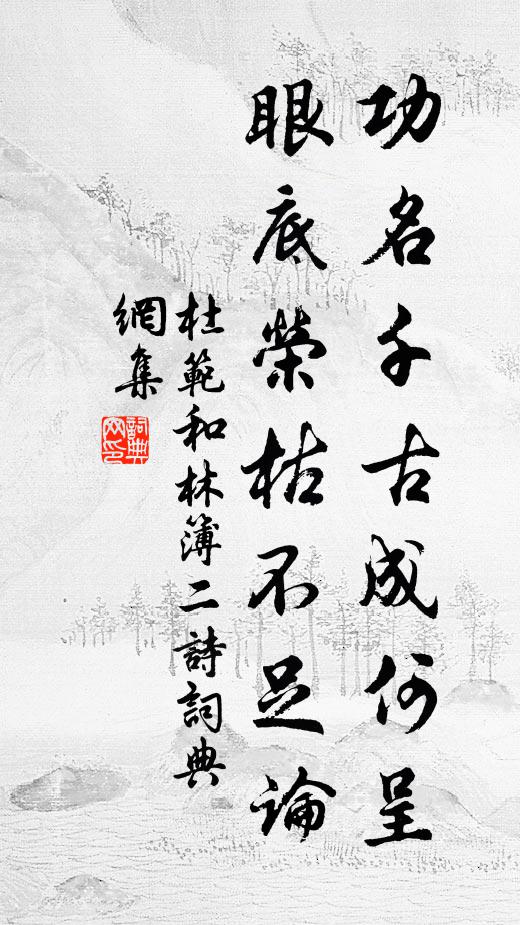 功名千古成何呈
眼底榮枯不足論
杜範和林簿二詩詞典
網集
詞典網印